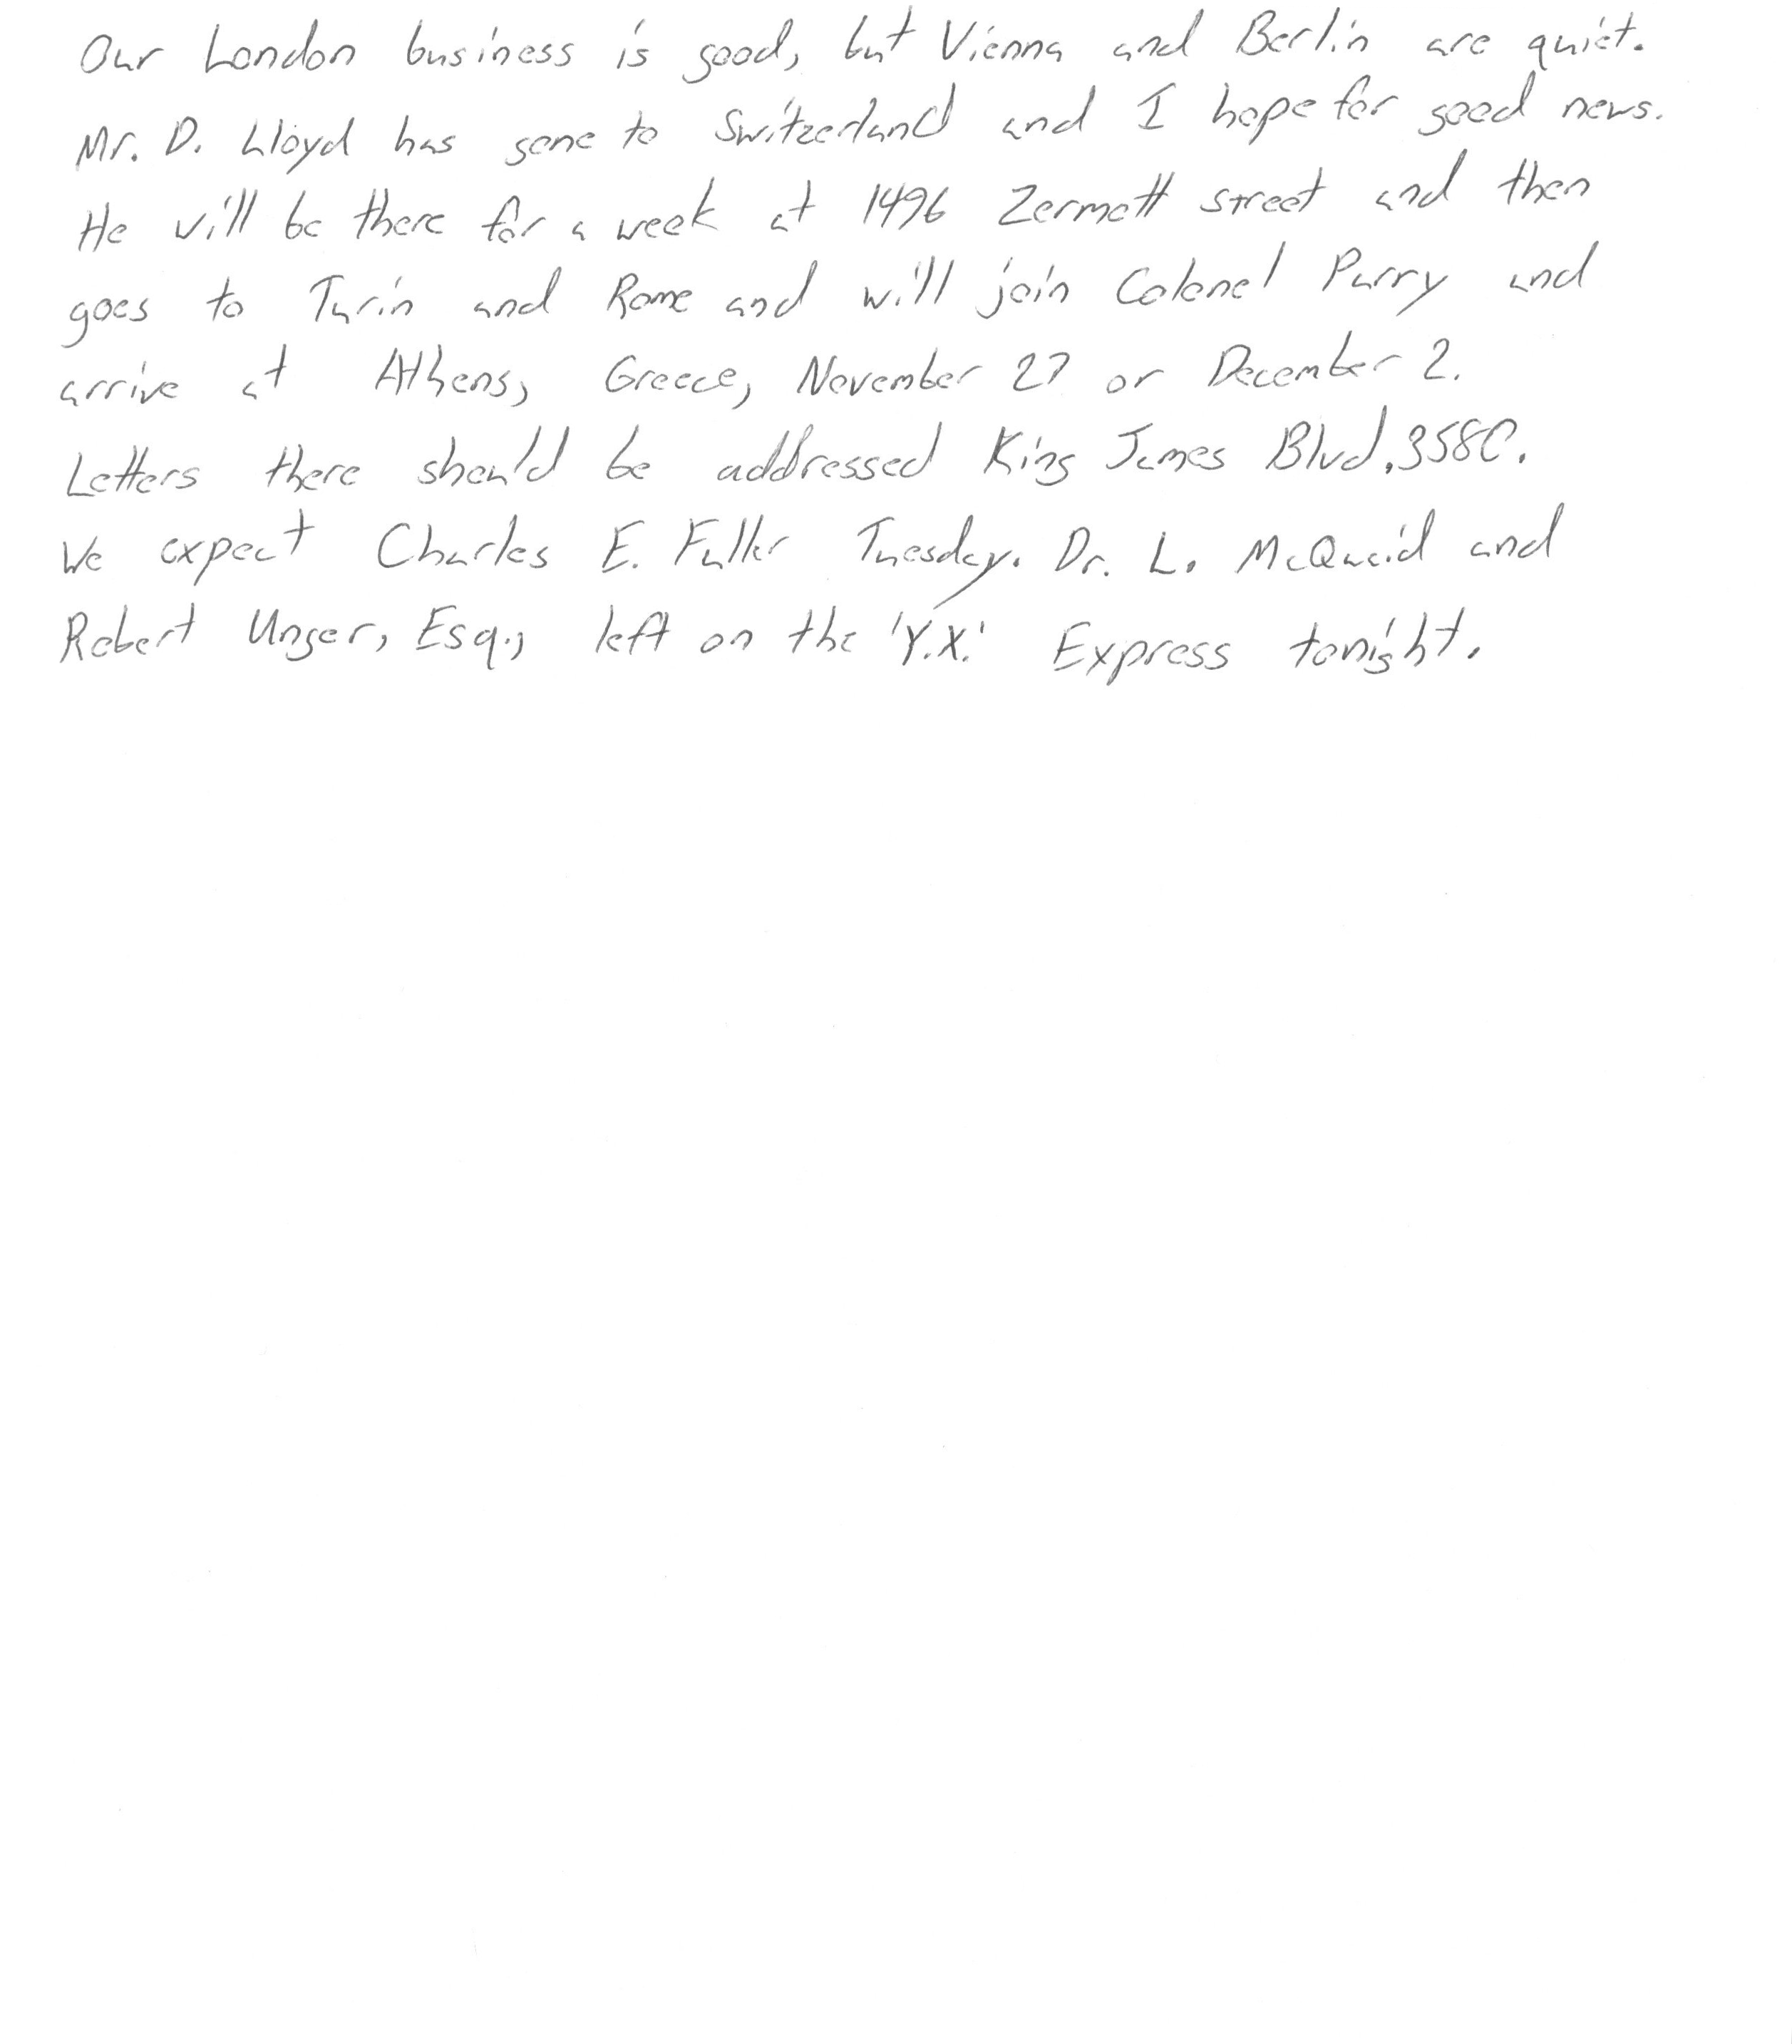 Our London business is good, but Vienna and Berlin are quiet.
Mr. D. Lloyd has gone to Switzerland and I hope for good news.
He will be there for a week at 1496 Zermott street and then
goes to Turin and Rome and will join Colonel Parry and
arrive at Athens, Greece, November 27 or December 2.
Letters there should be addressed King James Blvd. 3580.
We expect Charles E. Fuller Tuesday. Dr. L. McQuaid and
Robert Unger, Esq., left on the 'Y.X.' Express tonight.